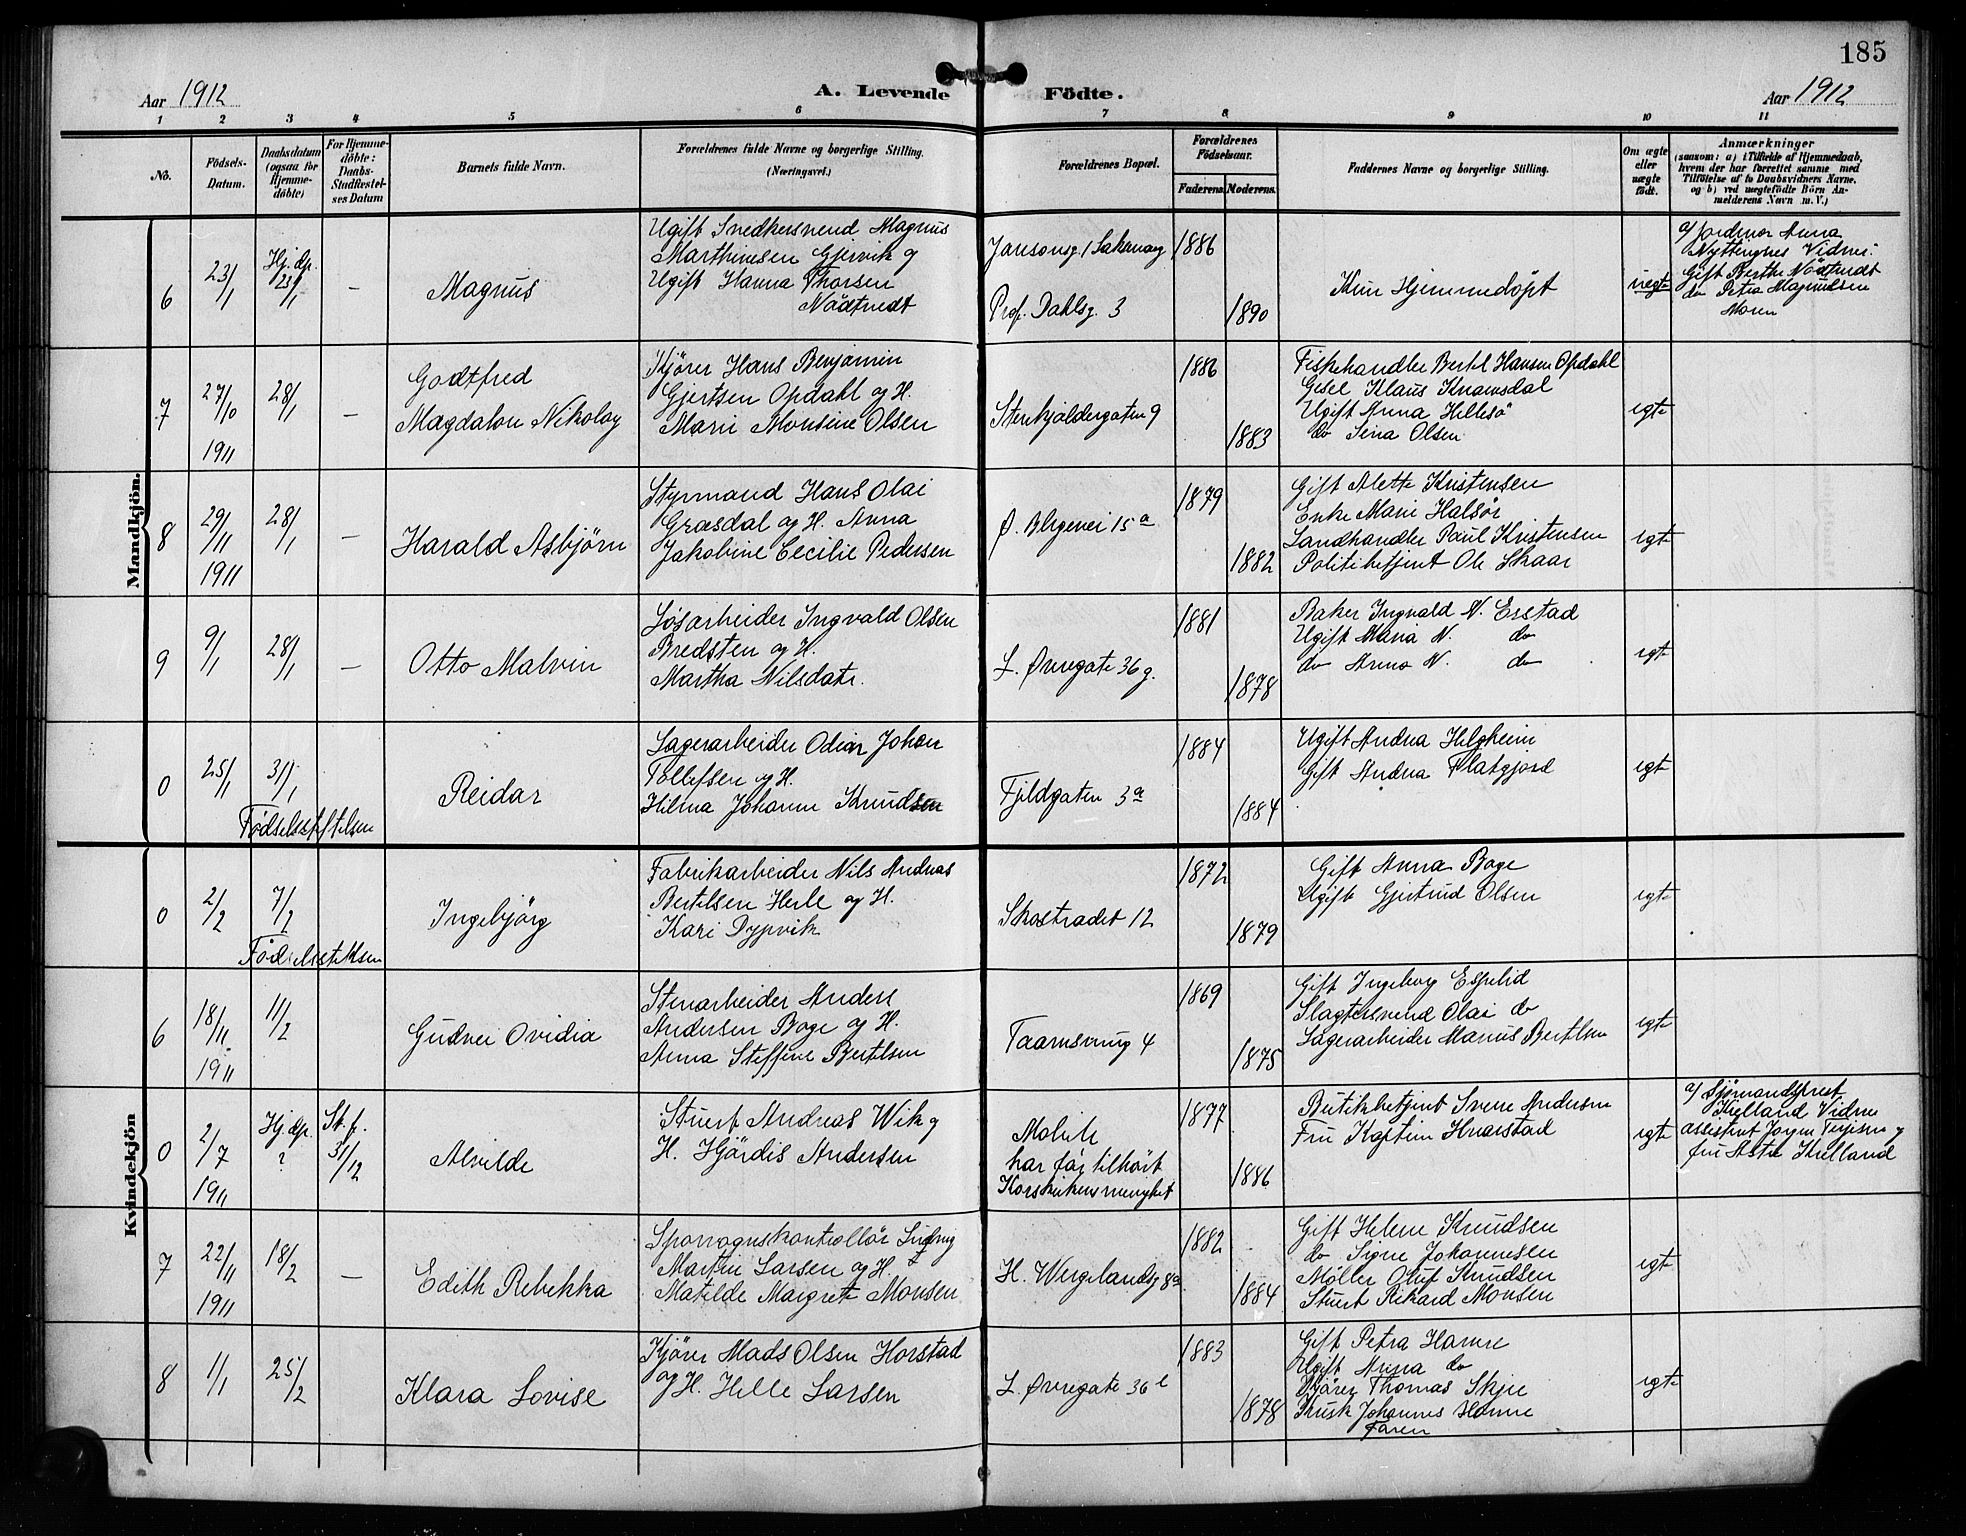 185
Aar 1912
A. Levende Födte.
Aar 1912
1 2 3 4 5 6 7 8 9 10 11
No.
Födsels-
Datum.
Daabsdatum
(ogsaa for
Hjemme-
döbte)
For Hjemme-
döbte:
Daabs-
Stadfæstel-
ses Datum
Barnets fulde Navn.
Forældrenes fulde Navne og borgerlige Stilling.
(Næringsvei.)
Forældrenes Bopæl.
Forældrenes
Födselsaar.
Faderens.
Moderens.
Faddernes Navne og borgerlige Stilling.
Om ægte
eller
uægte
födt.
Anmærkninger
(saasom: a) i Tilfælde af Hjemmedaab,
hvem der har forrettet samme med
Tilföielse af to Daabsvidners Navne,
og b) ved uægtefödte Börn An-
melderens Navn m. V.)
Mandkjön.
6
23/1
Hj. dp.
23/1
–
Magnus
Ugift Snedkersvend Magnus
Marthinsen Gjervik og
Ugift Hanna Thorsen
Nödtvedt
Prof. Dahlsg. 3
1886
1890
Kun Hjemmedöpt
uegte
a/ Jordmor Anna
Vidner:
Gift Berthe Nödtvedt
do Petra Magnusen
Moren
7
27/10
1911
28/1
–
Godtfred
Magdalon Nikolay
Kjörer Hans Benjamin
Gjertsen Opdahl og H.
Marie Monsine Olsen
Stenkjældergaten 9
1886
1883
Fiskehandler Bertel Hansen Opdahl
Gesel Klaus Knamsdal
Ugift Anna Hillesö
do Sina Olsen
egte
8
29/11
1911
28/1
–
Harald Asbjörn
Styrmand Hans Olai
Græsdal og H. Anna
Jakobine Cecilie Pedersen
Ø. Blegevei 15 a
1879
1882
Gift Alette Kristensen
Enke Marie Halsör
Landhandler Paul Kristensen
Politibetjent Ole Skaar
egte
9
9/1
28/1
–
Otto Malvin
Løsarbeider Ingvald Olsen
Bredsten og H.
Martha Nilsdatr.
L. Øvregate 36 g.
1881
1878
Baker Ingvald N. Erstad
Ugift Maria N. do
do Anna N. do
egte
0
25/1
31/1
Födselsstiftelsen
Reidar
Lagerarbeider Odin Johan
Tollefsen og H.
Hilma Johanne Knudsen
Fjeldgaten 3 a
1884
1884
Ugift Andrea Helgheim
Gift Andrea Flatgjord
egte
Kvindekjön
0
2/2
7/2
Födselsstiftelsen
Ingebjörg
Fabrikarbeider Nils Andreas
Bertilsen Herle og H.
Kari Dypvik
Skostrædet 12
1872
1879
Gift Anna Boge
Ugift Gjertrud Olsen
egte
6
18/11
1911
11/2
Gudnei Ovidia
Stenarbeider Anders
Andersen Boge og H.
Anna Steffine Bertilsen
Taarnsmug 4
1869
1875
Gift Ingeborg Espelid
Slagtersvend Olai do
Lagerarbeider Marius Bertilsen
egte
0
2/7
1911
Hj. dp.
?
St. f.
31/12
Alvilde
Stuert Andreas Wik og
H. Hjördis Andersen
Mobile
har för tilhört
Korskirkens menighet
1877
1886
Butikbetjent Svenn Andersen
Fru Kaptein Knarstad
egte
a/ Sjömandsprest
Kielland Vidne
assistent Jörgen Terjesen og
fru Astri Kielland
7
22/11
1911
18/2
–
Edith Rebekka
Sporvognskontrollör Ludvig
Martin Larsen og H.
Matilde Margrete Monsen
H. Wergelandsg 8 a
1882
1884
Gift Helene Knudsen
do Signe Johannesen
Møller Oluf Knudsen
Stuert Rikard Monsen
egte
8
1/1
25/2
Klara Lovise
Kjörer Mads Olsen Horstad
og H. Helle Larsen
L. Øvregate 36 e
1883
1878
Gift Petra Hamre
Ugift Anna do
Kjörer Thomas Skjie
Brusk Johannes Hamre
Faren
egte